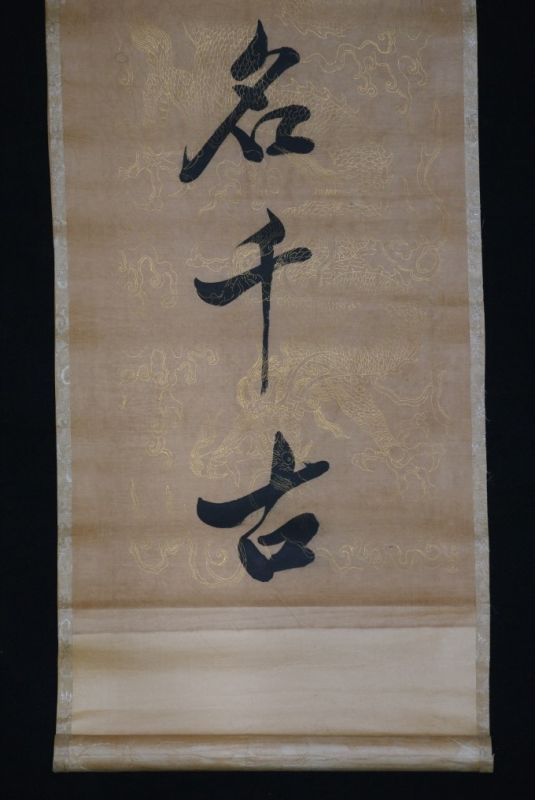 名千古